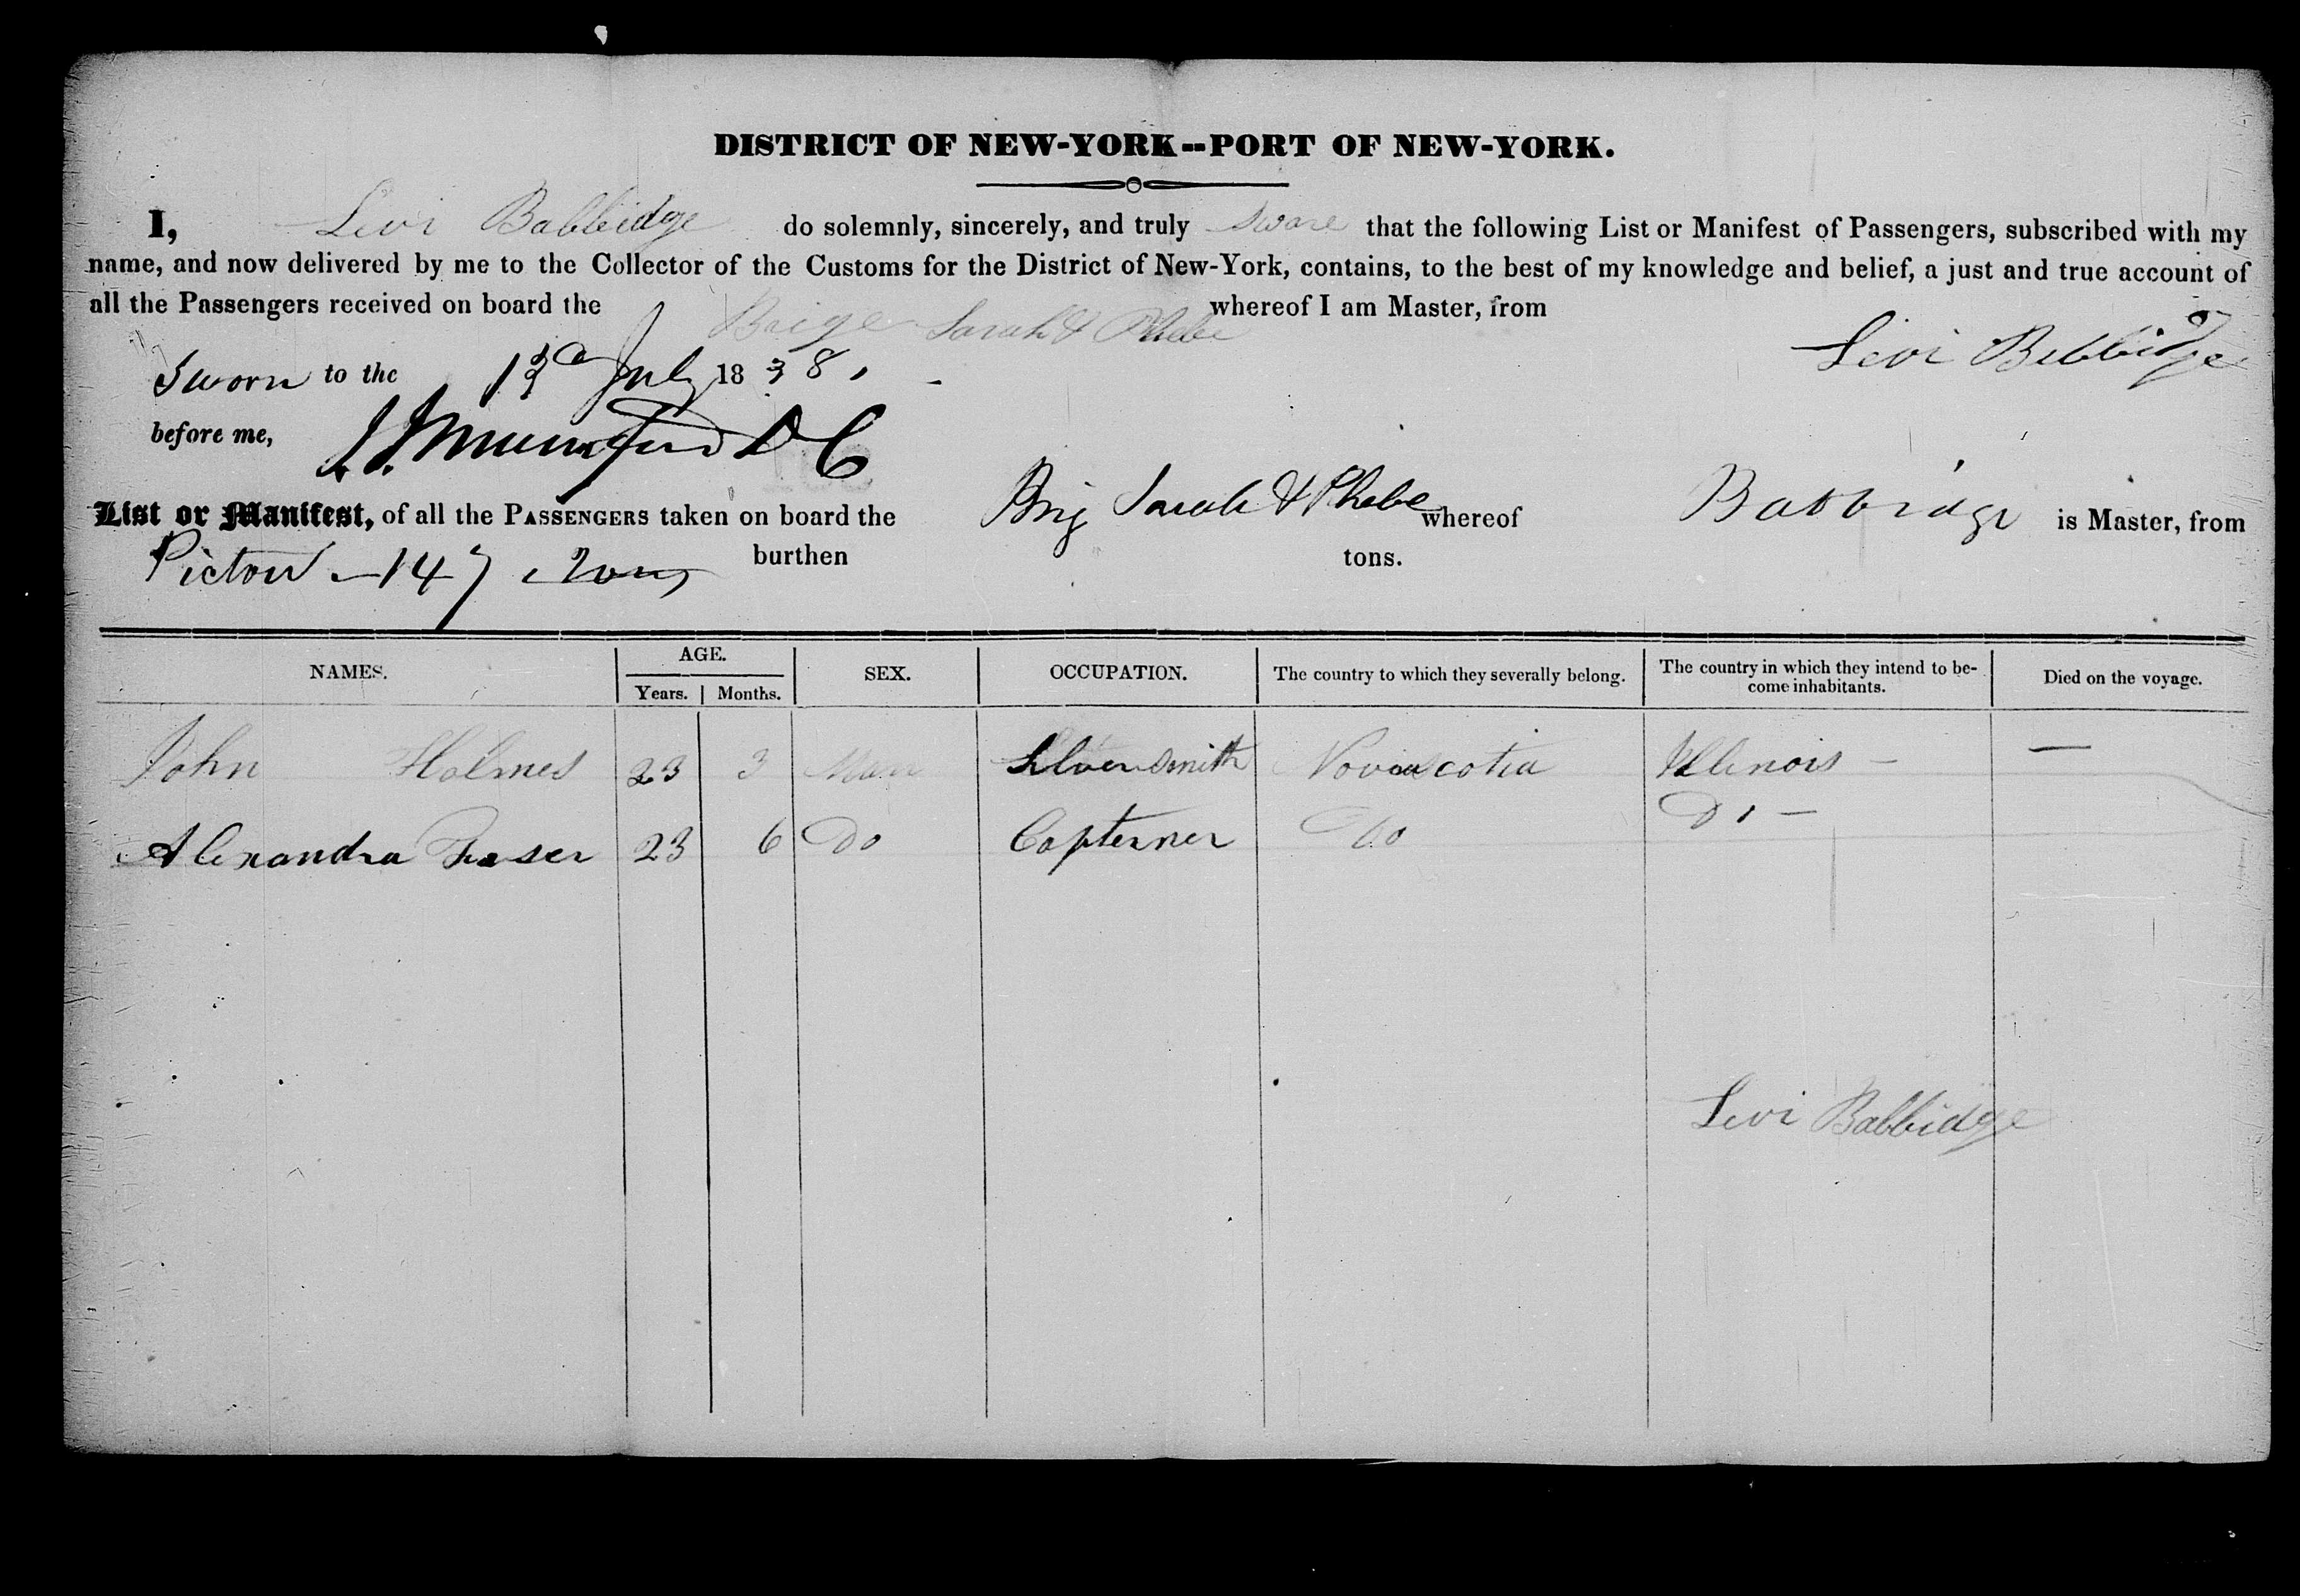 DISTRICT OF NEW-YORK--PORT OF NEW-YORK.
I, Levi Babbidge do solemnly, sincerely, and truly Sware that the following List or Manifest of Passengers, subscribed with my
name, and now delivered by me to the Collector of the Customs for the District of New-York, contains, to the best of my knowledge and belief, a just and true account of
all the Passengers received on board the Brige Sarah & Phebe whereof I am Master, from
Levi Babbidge
Sworn to the July 1838.
before me, DC
List or Manifest, of all the PASSENGERS taken on board the Brig Sarah & Phebe whereof Babbidge is Master, from
Pictou - 147 Tons burthen tons.
NAMES. AGE. Years. Months. SEX. OCCUPATION. The country to which they severally belong. The country in which they intend to be-come inhabitants. Died on the voyage.
John Holmes 23 3 Man Silversmith Novascotia Illinois - —
Alexandra Fraser 23 6 Do Capterner Do Do -
Levi Babbidge